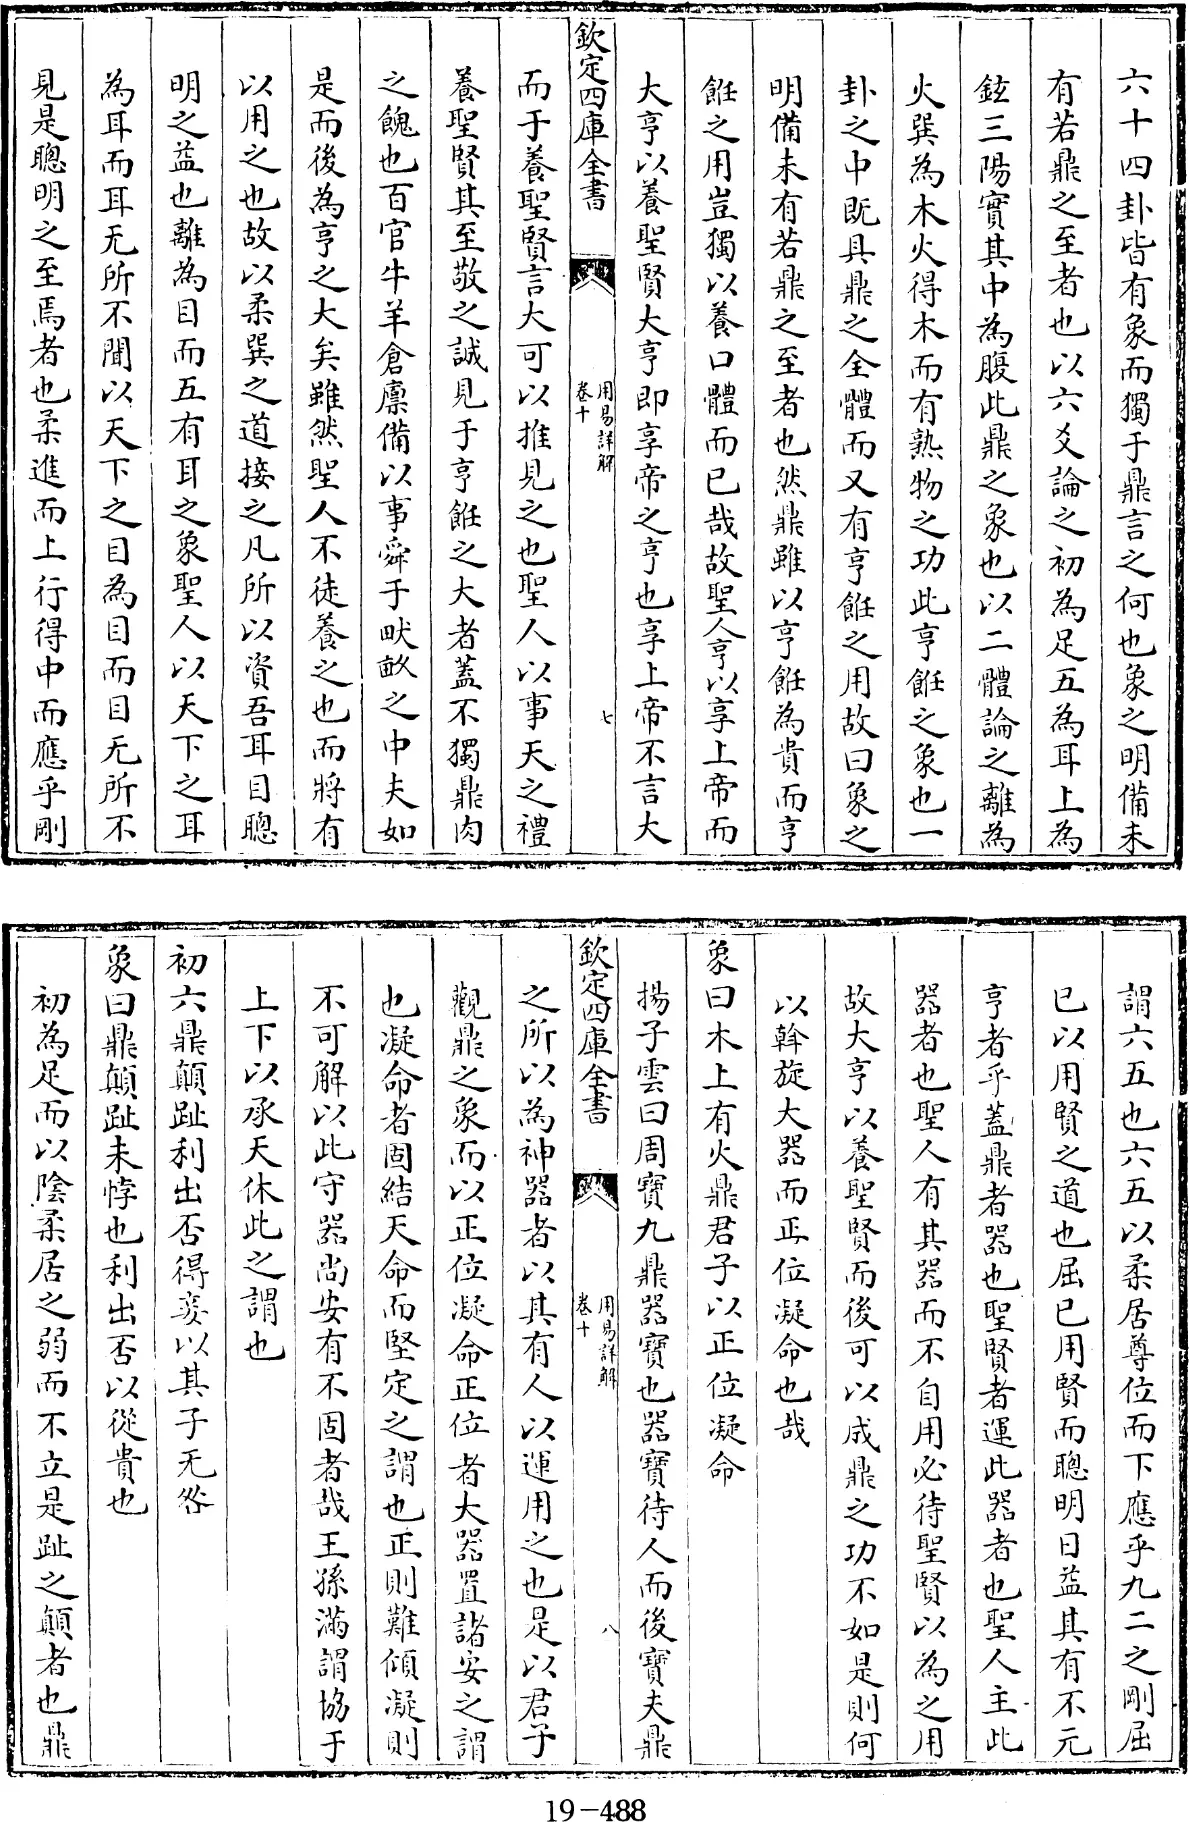 六十四卦皆有象而獨于鼎言之何也象之明備未
有若鼎之至者也以六爻論之初為足五為耳上為
鉉三陽實其中為腹此鼎之象也以二體論之離為
火巽為木火得木而有熟物之功此亨飪之象也一
卦之中既具鼎之全體而又有亨飪之用故曰象之
明備未有若鼎之至者也然鼎雖以亨飪為貴而亨
飪之用豈獨以養口體而已哉故聖人亨以享上帝而
大亨以養聖賢大亨即享帝之亨也享上帝不言大
欽定四庫全書
用易詳解
卷十
七
而于養聖賢言大可以推見之也聖人以事天之禮
養聖賢其至敬之誠見于亨飪之大者蓋不獨鼎肉
之餽也百官牛羊倉廪備以事舜于畎畝之中夫如
是而後為亨之大矣雖然聖人不徒養之也而將有
以用之也故以柔巽之道接之凡所以資吾耳目聰
明之益也離為目而五有耳之象聖人以天下之耳
為耳而耳无所不聞以天下之目為目而目无所不
見是聰明之至焉者也柔進而上行得中而應乎剛
謂六五也六五以柔居尊位而下應乎九二之剛屈
已以用賢之道也屈已用賢而聰明日益其有不元
亨者乎蓋鼎者器也聖賢者運此器者也聖人主此
器者也聖人有其器而不自用必待聖賢以為之用
故大亨以養聖賢而後可以成鼎之功不如是則何
以斡旋大器而正位凝命也哉
象曰木上有火鼎君子以正位凝命
揚子雲曰周寶九鼎器寶也器寶待人而後寶夫鼎
欽定四庫全書
用易詳解
卷十
八
之所以為神器者以其有人以運用之也是以君子
觀鼎之象而以正位凝命正位者大器置諸安之謂
也凝命者固結天命而堅定之謂也正則難傾凝則
不可解以此守器尚安有不固者哉王孫滿謂協于
上下以承天休此之謂也
初六鼎顛趾利出否得妾以其子无咎
象曰鼎顛趾未悖也利出否以從貴也
初為足而以陰柔居之弱而不立是趾之顛者也鼎
19-488